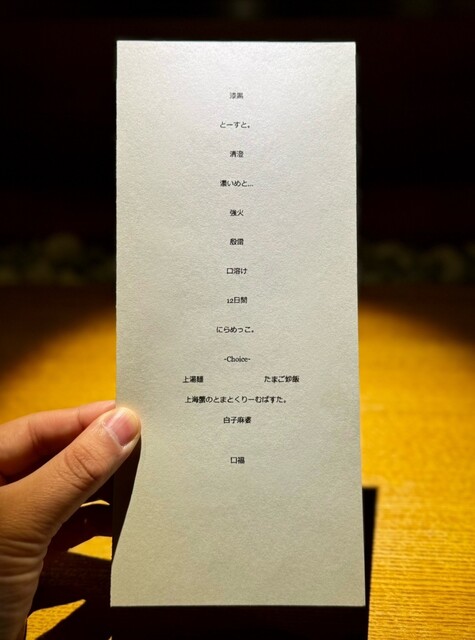 漆黒
とーすと。
清澄
濃いめと...
強火
殷雷
口溶け
12日間
にらめっこ。
-Choice-
上湯麺 たまご炒飯
上海蟹のとまとくりーむぱすた。
白子麻婆
口福